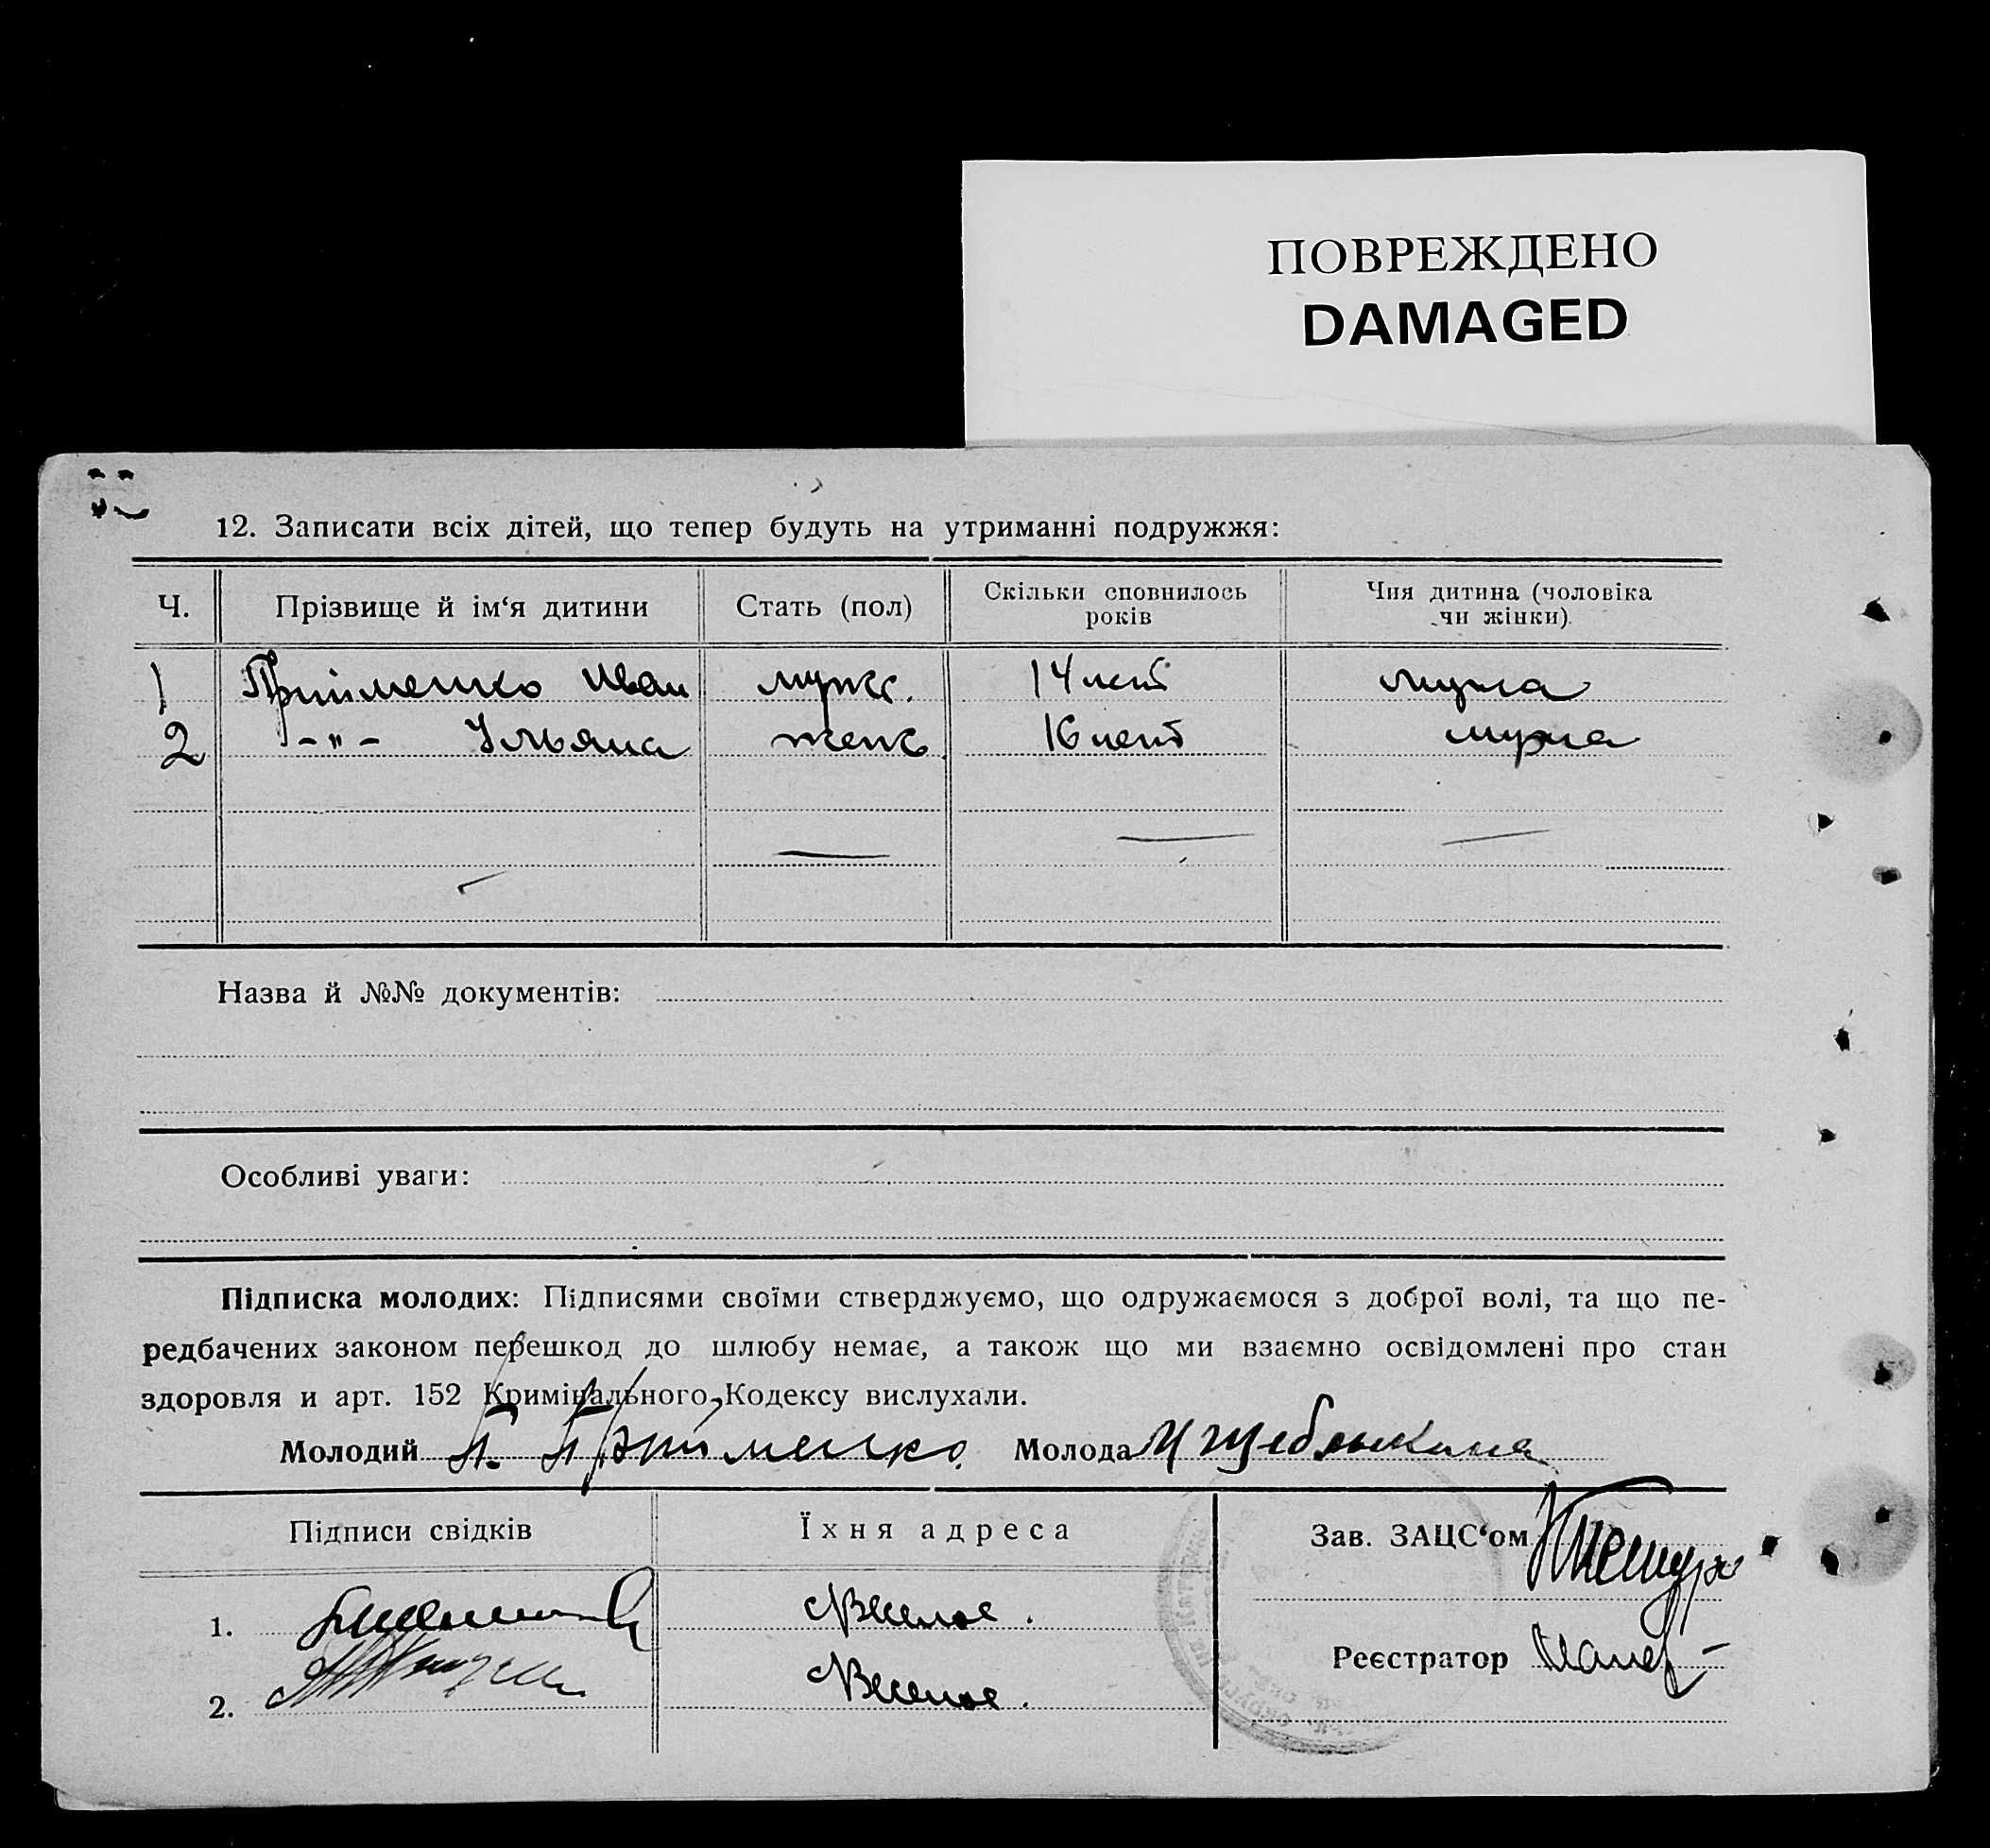 ПОВРЕЖДЕНО
DAMAGED
12. Записати всіх дітей, що тепер будуть на утриманні подружжя:
Ч. Прізвище й ім‘я дитини Стать (пол) Скільки сповнилось років Чия дитина (чоловіка чи жінки)
1 Прийменко Иван мужс. 14 лет мужа
2 -"- Ульяна женс. 16 лет мужа
Назва й №№ документів:
Особливі уваги:
Підписка молодих: Підписями своїми стверджуємо, що одружаємося з доброї волі, та що пе-
редбачених законом перешкод до шлюбу немає, а також що ми взаємно освідомлені про стан
здоровля и арт. 152 Кримінального Кодексу вислухали.
Молодий П. Прийменко Молода
Підписи свідків Їхня адреса Зав. ЗАЦС‘ом
1. с Веселое.
Реєстратор
2. с Веселое.